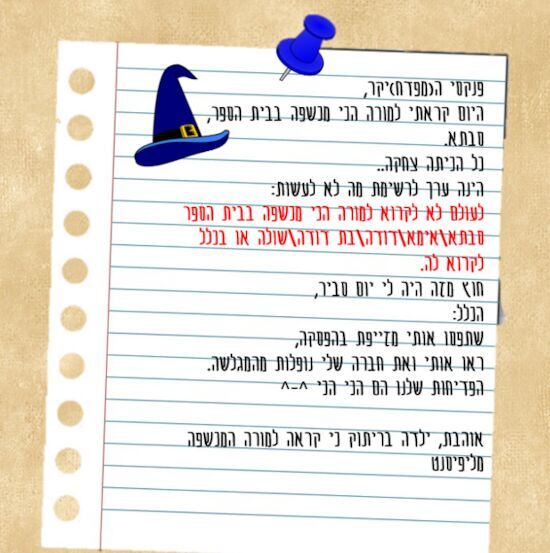 פנקסי ה(מפדח)יקר,
היום קראתי למורה הכי מכשפה בבית הספר,
סבתא.
כל הכיתה צחקה..
הינה ערך לרשימת מה לא לעשות:
לעולם לא לקרוא למורה הכי מכשפה בבית הספר
סבתא\אימא\דודה\בת דודה\שולה או בכלל
לקרוא לה.
חוץ מזה היה לי יום סביר,
הכלל:
שתפסו אותי מזייפת בהפסקה,
ראו אותי ואת חברה שלי נופלות מהמגלשה.
הפדיחות שלנו הם הכי הכי ^-^
אוהבת, ילדה בריתוק כי קראה למורה המכשפה
מליפיסנט